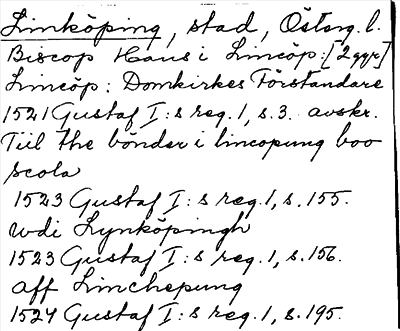 Linköping, stad, Österg. l.
Biscop Hans i Lincöp: [2 ggr]
Lincöp: Domkirkes Förstandare
1521 Gustaf I:s reg. 1, s. 3. avskr.
Tiil the bönder i lincopung boo
scola
1523 Gustaf I:s reg. 1, s. 155.
wdi Lynköpingh
1523 Gustaf I:s reg. 1, s. 156.
aff Linchepung
1524 Gustaf I:s reg. 1, s. 195.